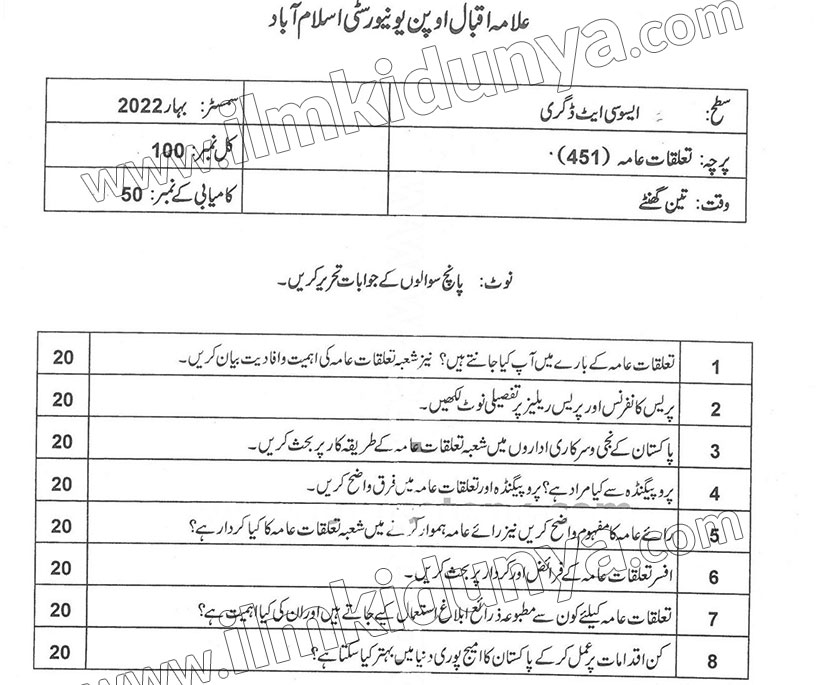 علامہ اقبال اوپن یونیورسٹی اسلام آباد
سطح: ایسوسی ایٹ ڈگری سمسٹر: بہار 2022
پرچہ: تعلقات عامہ (451) کل نمبر: 100
وقت: تین گھنٹے کامیابی کے نمبر: 50
نوٹ: پانچ سوالوں کے جوابات تحریر کریں۔
1 تعلقات عامہ کے بارے میں آپ کیا جانتے ہیں؟ نیز شعبہ تعلقات عامہ کی اہمیت و افادیت بیان کریں۔ 20
2 پریس کانفرنس اور پریس ریلیز پر تفصیلی نوٹ لکھیں۔ 20
3 پاکستان کے نجی و سرکاری اداروں میں شعبہ تعلقات عامہ کے طریقہ کار پر بحث کریں۔ 20
4 پروپیگنڈہ سے کیا مراد ہے؟ پروپیگنڈہ اور تعلقات عامہ میں فرق واضح کریں۔ 20
5 رائے عامہ کا مفہوم واضح کریں نیز رائے عامہ ہموار کرنے میں شعبہ تعلقات عامہ کا کیا کردار ہے؟ 20
6 افسر تعلقات عامہ کے فرائض اور کردار پر بحث کریں۔ 20
7 تعلقات عامہ کیلئے کون سے مطبوعہ ذرائع ابلاغ استعمال کیے جاتے ہیں اور ان کی کیا اہمیت ہے؟ 20
8 کن اقدامات پر عمل کر کے پاکستان کا امیج پوری دنیا میں بہتر کیا سکتا ہے؟ 20
www.ilmkidunya.com
www.ilmkidunya.com